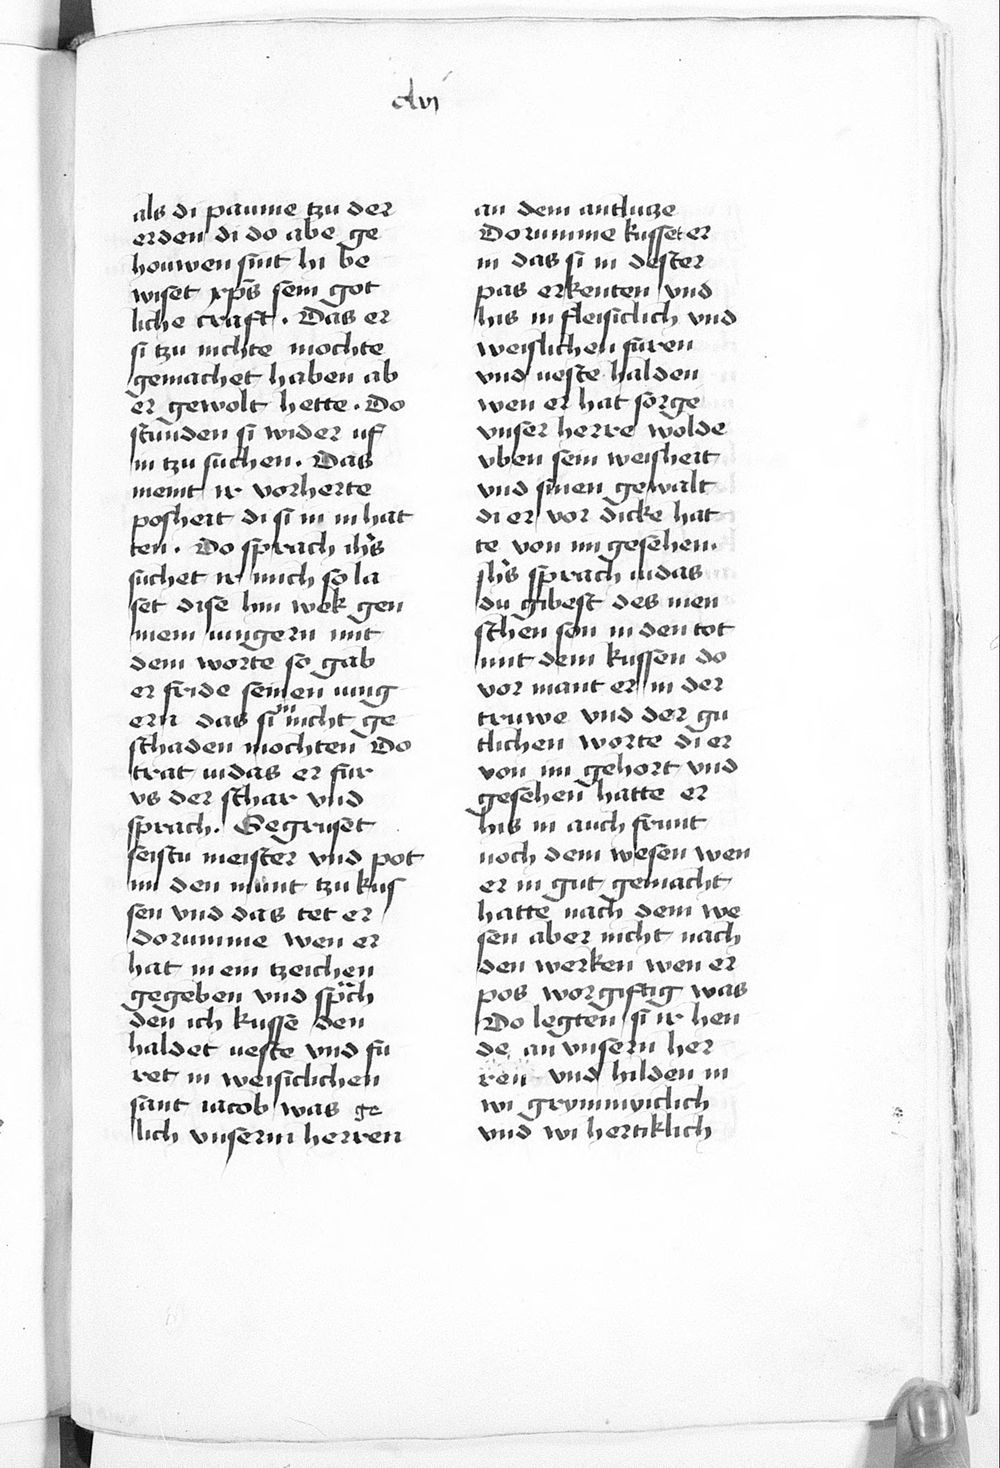 clvi
als di paume tzu der
erden di do abe ge
houwen sint hi be
wiset xp̄s sein got
liche craft. Das er
si tzu nichte mochte
gemachet haben ab
er gewolt hette. Do
stunden si wider uf
in tzu suchen. Das
meint ir vorherte
posheit di si in in hat
ten. Do sprach ih̄s
suchet ir mich so la
set dise hin wek gen
mein iungern mit
dem worte so gab
er fride seinen iung
ern das si im nicht ge
schaden mochten Do
trat iudas er fur
vs der schar vnd
sprach. Gegruset
seistu meister vnd pot
im den munt tzu kus
sen vnd das tet er
dorumme wen er
hat in ein tzeichen
gegeben vnd sp̄ch
den ich kusse den
haldet ueste vnd fu
ret in weisiclichen
sant iacob was ge
lich vnserm herren
an dem antlucze
Dorumme kusset er
in das si in dester
pas erkenten vnd
his in fleisiclich vnd
weislichen furen
vnd ueste halden
wen er hat sorge
vnser herre wolde
vben sein weisheit
vnd sinen gewalt
di er vor dicke hat
te von im gesehen.
ih̄s sprach iudas
du gibest des men
schen son in den tot
mit dem kussen do
vor mant er in der
truwe vnd der gu
tlichen worte di er
von im gehort vnd
gesehen hatte er
his in auch frunt
noch dem wesen wen
er in gut gemacht
hatte nach dem we
sen aber nicht nach
den werken wen er
pos vorgiftig was
Do legten si ir hen
de an vnsern her
ren vnd hilden in
wi grymmiclich
vnd wi herticklich